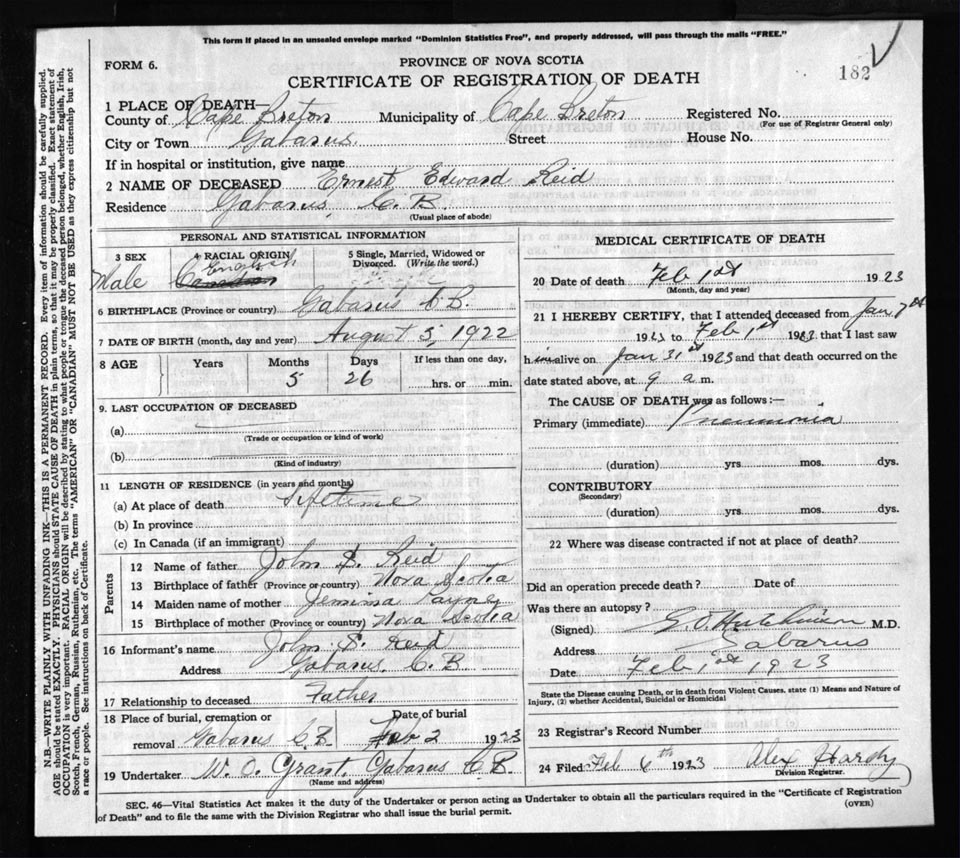 This form if placed in an unsealed envelope marked "Dominion Statistics Free", and properly addressed, will pass through the mails "FREE."
FORM 6.
PROVINCE OF NOVA SCOTIA
CERTIFICATE OF REGISTRATION OF DEATH
182
1 PLACE OF DEATH—
County of Cape Breton Municipality of Cape Breton Registered No.
(For use of Registrar General only)
City or Town Gabarus Street House No.
If in hospital or institution, give name
2 NAME OF DECEASED Ernest Edward Reid
Residence Gabarus C. B
(Usual place of abode)
PERSONAL AND STATISTICAL INFORMATION
3 SEX 4 RACIAL ORIGIN 5 Single, Married, Widowed or Divorced. (Write the word.)
Male English Canadian
6 BIRTHPLACE (Province or country) Gabarus C B.
7 DATE OF BIRTH (month, day and year) August 5, 1922
8 AGE Years Months Days If less than one day,
5 26 hrs. or min.
9. LAST OCCUPATION OF DECEASED
(a)
(Trade or occupation or kind of work)
(b)
(Kind of industry)
11 LENGTH OF RESIDENCE (in years and months)
(a) At place of death Lifetime
(b) In province
(c) In Canada (if an immigrant)
Parents
12 Name of father John S. Reid
13 Birthplace of father (Province or country) Nova Scotia
14 Maiden name of mother Jemima Payne
15 Birthplace of mother (Province or country) Nova Scotia
16 Informant's name John S. Reid
Address Gabarus C. B
17 Relationship to deceased Father
18 Place of burial, cremation or Date of burial
removal Gabarus C. B. Feb 2 1923
19 Undertaker W. O. Grant, Gabarus C B.
(Name and address)
MEDICAL CERTIFICATE OF DEATH
20 Date of death Feb 1st 1923
(Month, day and year)
21 I HEREBY CERTIFY, that I attended deceased from Jan 7th
1923 to Feb 1st 1923 that I last saw
him alive on Jan 31st 1923 and that death occurred on the
date stated above, at 9 a m.
The CAUSE OF DEATH was as follows:—
Primary (immediate) Pneumonia
(duration) yrs mos. dys.
CONTRIBUTORY
(Secondary)
(duration) yrs mos. dys.
22 Where was disease contracted if not at place of death?
Did an operation precede death? Date of
Was there an autopsy?
(Signed) Hutchinson M.D.
Address Gabarus
Date Feb 1st 1923
State the Disease causing Death, or in death from Violent Causes, state (1) Means and Nature of
Injury, (2) whether Accidental, Suicidal or Homicidal
23 Registrar's Record Number
24 Filed Feb 6th 1923 Alex Hardy
Division Registrar.
SEC. 46—Vital Statistics Act makes it the duty of the Undertaker or person acting as Undertaker to obtain all the particulars required in the "Certificate of Registration
of Death" and to file the same with the Division Registrar who shall issue the burial permit.
(OVER)
N.B.—WRITE PLAINLY WITH UNFADING INK—THIS IS A PERMANENT RECORD. Every item of information should be carefully supplied.
AGE should be stated EXACTLY. PHYSICIANS should STATE CAUSE OF DEATH in plain terms, so that it may be properly classified. Exact statement of
OCCUPATION is very important. RACIAL ORIGIN will be described by stating to what people or tongue the deceased person belonged, whether English, Irish,
Scotch, French, German, Russian, Ruthenian, etc. The terms "AMERICAN" OR "CANADIAN" MUST NOT BE USED as they express citizenship but not
a race or people. See instructions on back of Certificate.